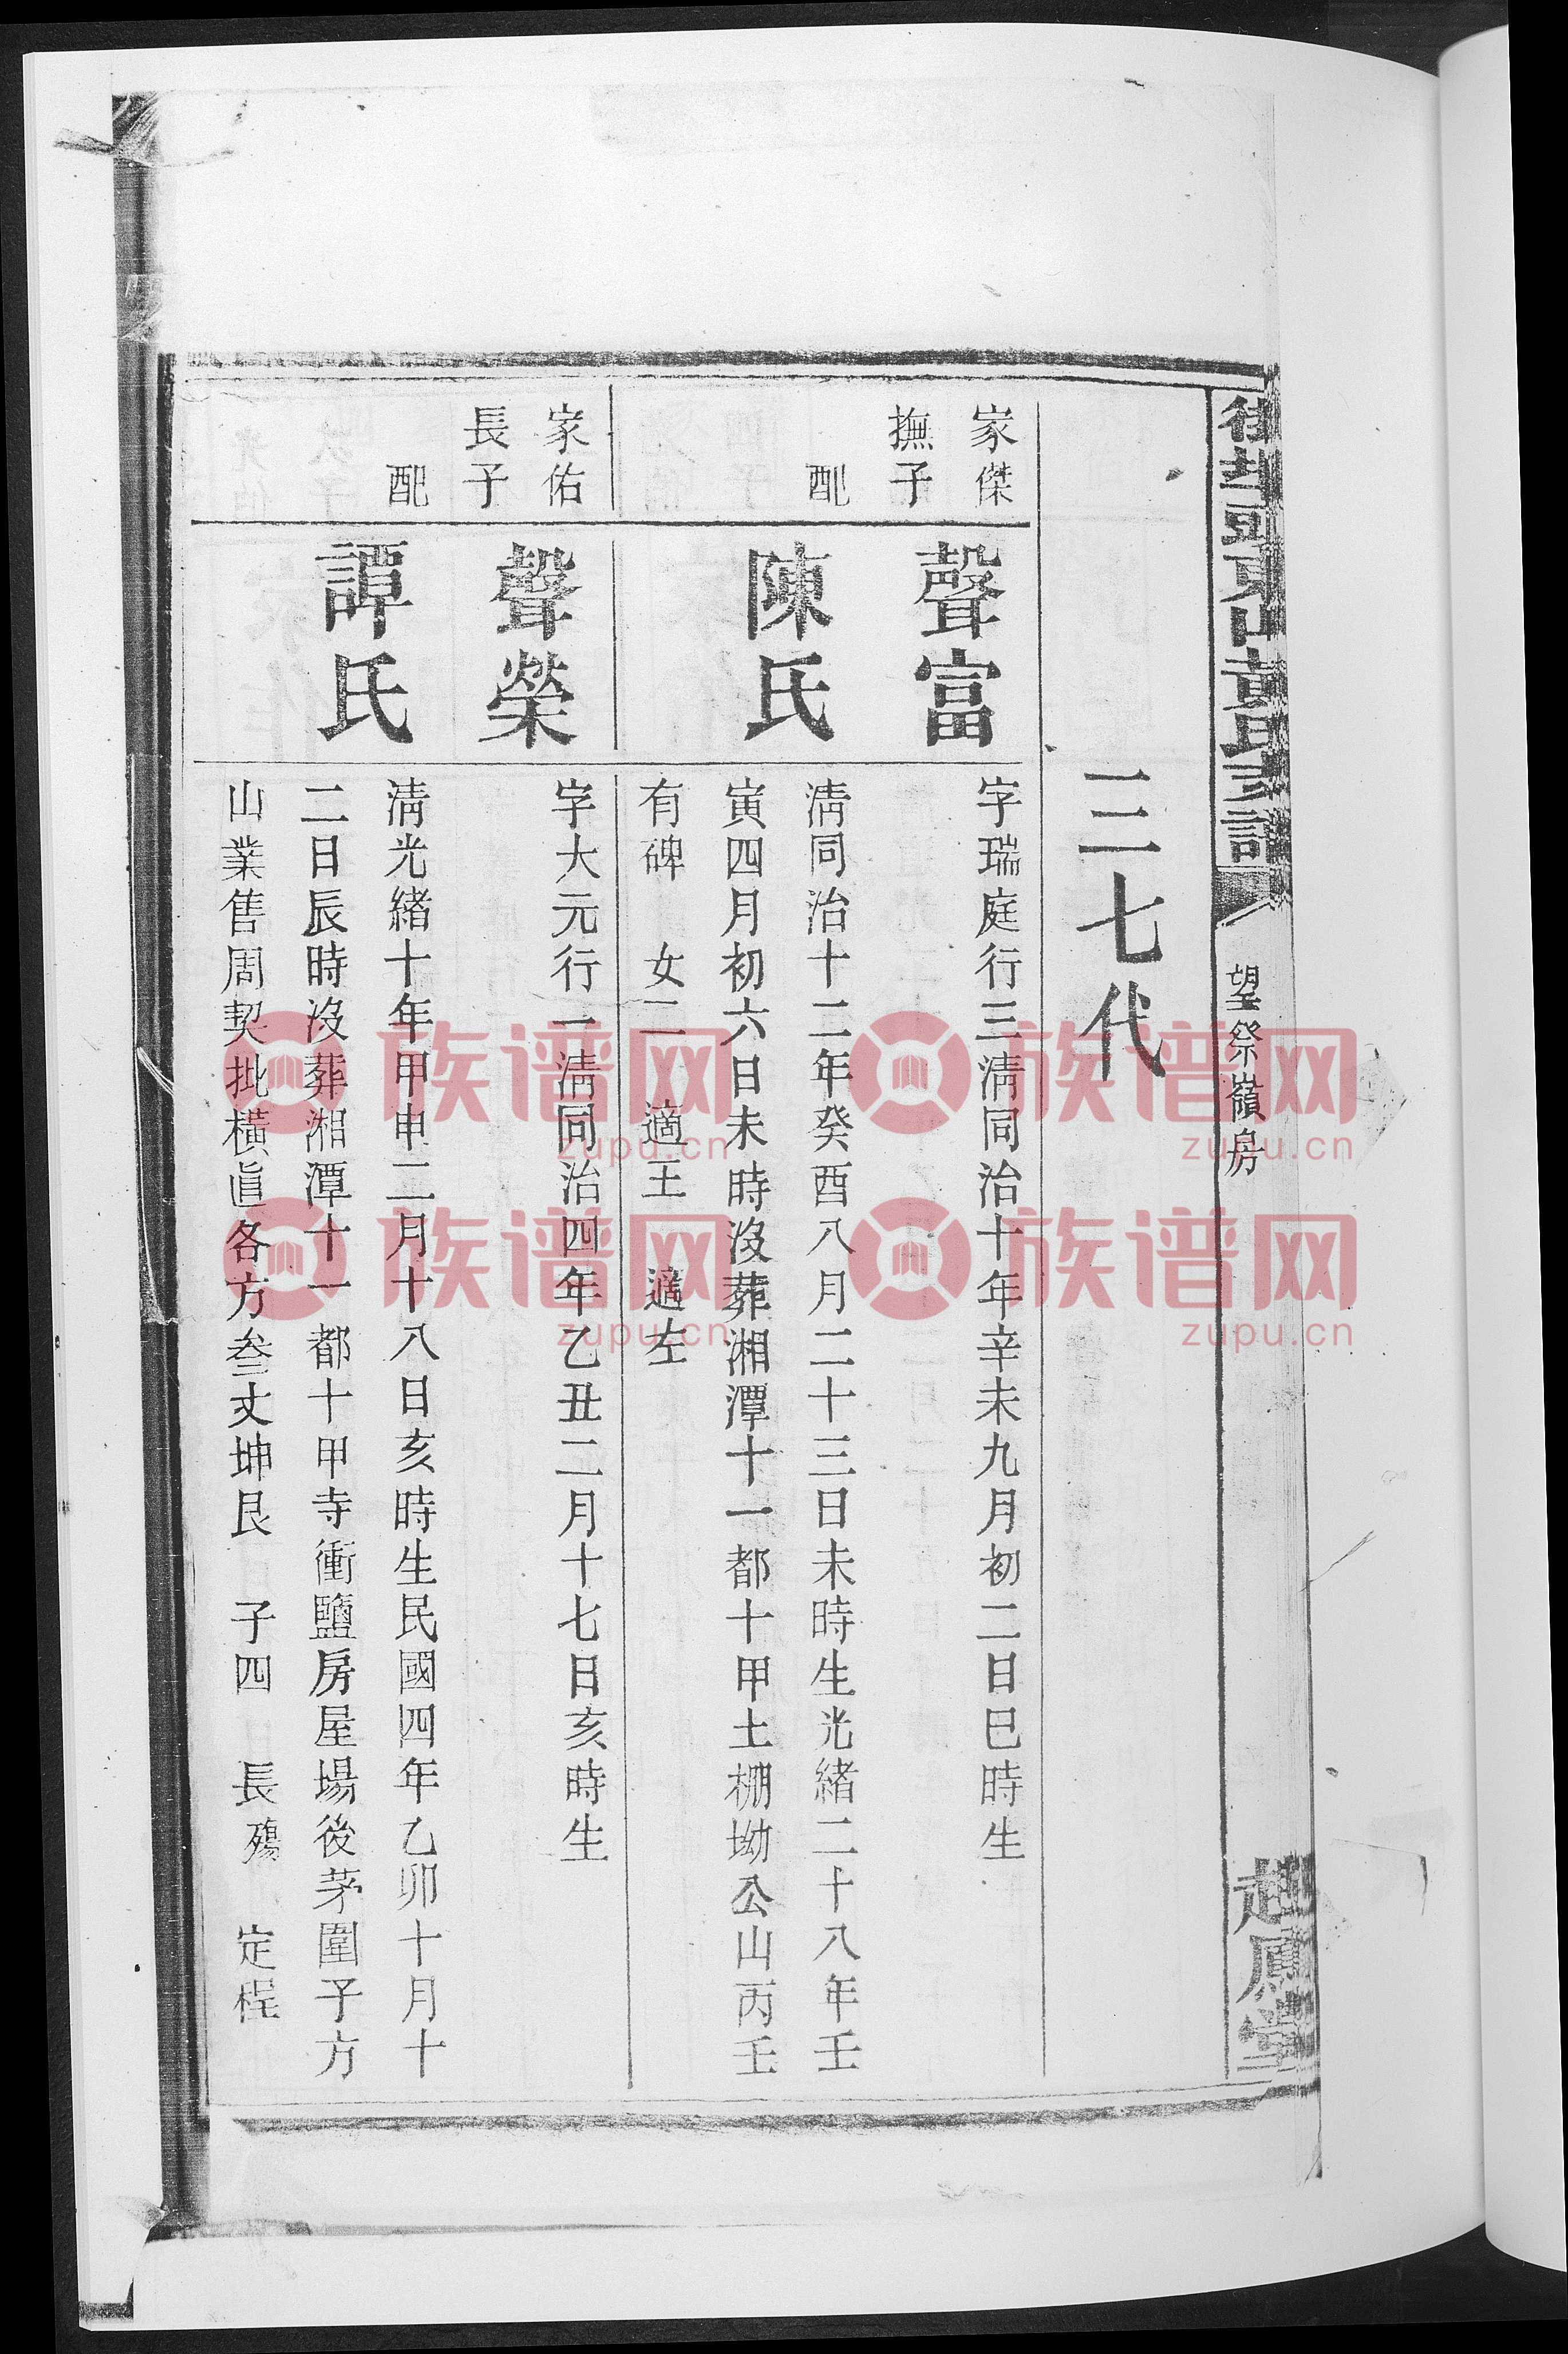 東山黄氏支譜
望祭嶺房
起鳳堂
三七代
家傑
撫子
配
聲富
陳氏
字瑞庭行三淸同治十年辛未九月初二日巳時生
淸同治十二年癸酉八月二十三日未時生光緒二十八年壬
寅四月初六日未時沒葬湘潭十一都十甲土棚坳公山丙壬
有碑 女二 適王 適左
家佑
長子
配
聲榮
譚氏
字大元行一淸同治四年乙丑二月十七日亥時生
淸光緒十年甲申二月十八日亥時生民國四年乙卯十月十
二日辰時沒葬湘潭十一都十甲寺衝鹽房屋場後茅園子方
山業售周契批橫直各方叁丈坤艮 子四 長殤 定程
族谱网
zupu.cn
族谱网
zupu.cn
族谱网
zupu.cn
族谱网
zupu.cn